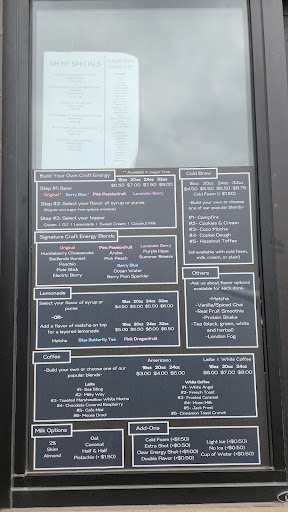 OH FIT SPECIALS
Build Your Own Craft Energy
** Available in sugar free
16oz 20oz 24oz 32oz
$6.50 $7.00 $7.50 $9.00
Step #1: Base
Original * Berry Blue * Pink Passionfruit Lavender Berry
Step #2: Select your flavor of syrup or puree
(Regular and sugar free options available)
Step #3: Select your topper
Cream | OJ | Lemonade | Sweet Cream | Coconut Milk
Signature Craft Energy Blends
Original
Huckleberry Cheesecake
Badlands Sunset
Peachio
Pink Stick
Electric Berry
Pink Passionfruit
Aruba
Pink Peach
Berry Blue
Ocean Water
Berry Porn Sparkler
Lavender Berry
Purple Haze
Summer Breeze
Lemonade
Select your flavor of syrup or puree
16oz 20oz 24oz 32oz
$4.50 $5.00 $5.50 $6.00
-OR-
Add a flavor of matcha on top for a layered lemonade
16oz 20oz 24oz 32oz
Matcha Blue Butterfly Tea Pink Dragonfruit
Coffee
-Build your own or choose one of our popular blends-
Americano
16oz 20oz 24oz
$3.00 $4.00 $5.00
Latte | White Coffee
16oz 20oz 24oz
$6.00 $7.00 $8.00
Latte
#1- Bee Sting
#2- Milky Way
#3- Toasted Marshmallow White Mocha
#4- Chocolate Covered Raspberry
#5- Cafe Miel
#6- Moose Drool
White Coffee
#1- White Angel
#2- Twice Toasted
#3- Frosted Caramel
#4- Moon Milk
#5- Jack Frost
#6- Cinnamon Toast Crunch
Milk Options
2%
Skim
Almond
Oat
Coconut
Half & Half
Pistachio (+ $1.50)
Add-Ons
Cold Foam (+$1.50)
Extra Shot (+$0.50)
Clear Energy Shot (+$1.00)
Double Flavor (+$0.50)
Light Ice (+$0.50)
No Ice (+$0.50)
Cup of Water (+$0.50)
Cold Brew
16oz 20oz 24oz 32oz
$4.50 $5.50 $6.50 $6.75
Cold Foam (+ $1.50)
-Build your own or choose one of our popular blends-
#1- Campfire
#2- Cookies & Cream
#3- Coco Mocha
#4- Cookie Dough
#5- Hazelnut Toffee
(all available with cold foam, milk, cream, or plain)
Others
-Ask us about flavor options available for each drink-
-Matcha
-Vanilla/Spiced Chai
-Real Fruit Smoothie
-Protein Shake
-Tea (black, green, white and herbal)
-London Fog